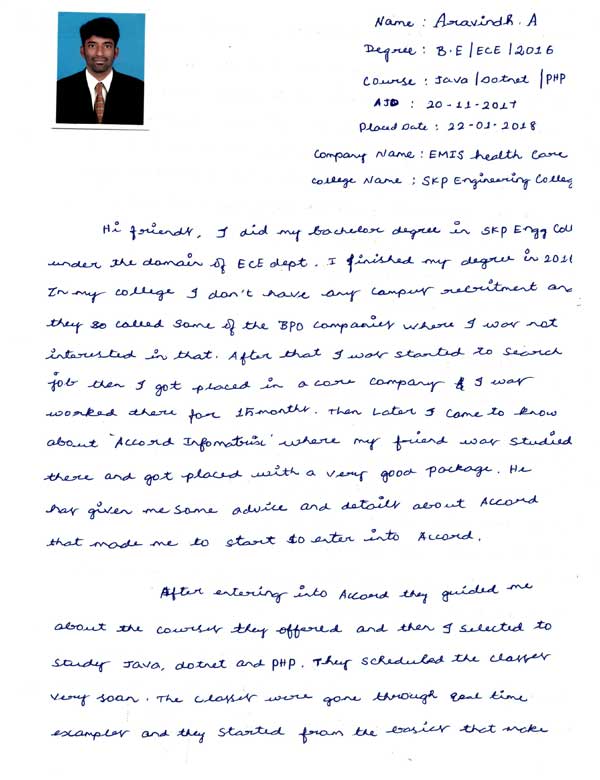 Name : Aravindh. A
Degree : B.E | ECE | 2016
Course : Java | Dotnet | PHP
AJD : 20-11-2017
Placed Date : 22-01-2018
Company Name : EMIS health Care
College Name : SKP Engineering Colleg
Hi friends, I did my bachelor degree in SKP Engg Coll
under the domain of ECE dept. I finished my degree in 2016
In my college I don't have any campus recruitment an
they so called some of the BPO companies where I was not
interested in that. After that I was started to search
job then I got placed in a core company & I was
worked there for 15 months. Then Later I came to know
about "Accord Infomatrix" where my friend was studied
there and got placed with a very good package. He
has given me some advice and details about Accord
that made me to start to enter into Accord.
After entering into Accord they guided me
about the courses they offered and then I selected to
study Java, dotnet and PHP. They scheduled the classes
very soon. The classes were gone through real time
examples and they started from the basics that make